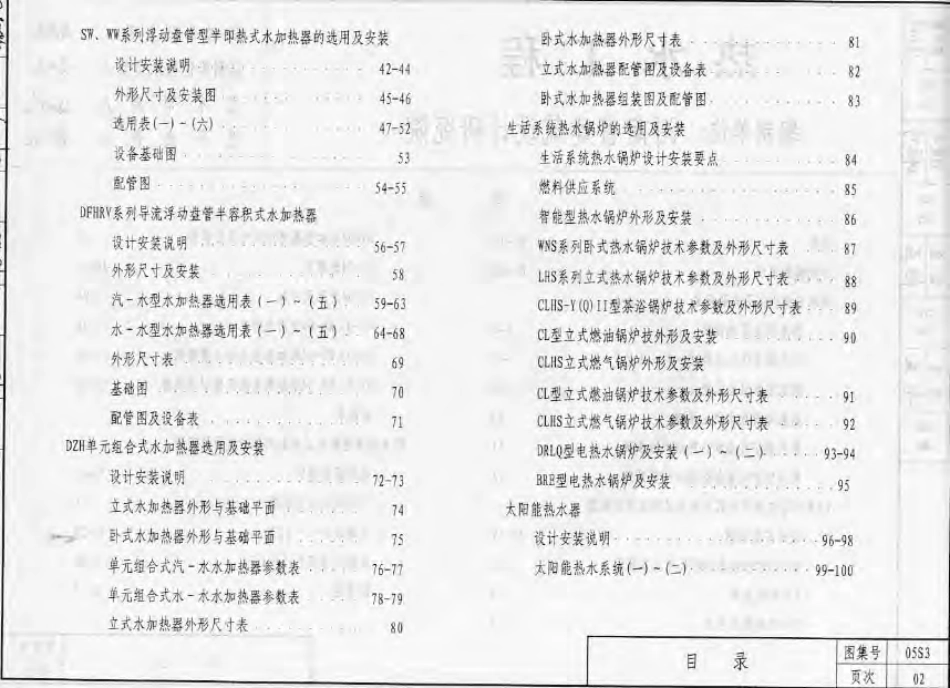 SW、WW系列浮动盘管型半即热式水加热器的选用及安装
设计安装说明 42-44
外形尺寸及安装图 45-46
选用表(一)-(六) 47-52
设备基础图 53
配管图 54-55
DFHRV系列导流浮动盘管半容积式水加热器
设计安装说明 56-57
外形尺寸及安装 58
汽-水型水加热器选用表(一)-(五) 59-63
水-水型水加热器选用表(一)-(五) 64-68
外形尺寸表 69
基础图 70
配管图及设备表 71
DZH单元组合式水加热器选用及安装
设计安装说明 72-73
立式水加热器外形与基础平面 74
卧式水加热器外形与基础平面 75
单元组合式汽-水水加热器参数表 76-77
单元组合式水-水水加热器参数表 78-79
立式水加热器外形尺寸表 80
卧式水加热器外形尺寸表 81
立式水加热器配管图及设备表 82
卧式水加热器组装图及配管图 83
生活系统热水锅炉的选用及安装
生活系统热水锅炉设计安装要点 84
燃料供应系统 85
智能型热水锅炉外形及安装 86
WNS系列卧式热水锅炉技术参数及外形尺寸表 87
LHS系列立式热水锅炉技术参数及外形尺寸表 88
CLHS-Y(Q)II型茶浴锅炉技术参数及外形尺寸表 89
CL型立式燃油锅炉技外形及安装 90
CLHS立式燃气锅炉外形及安装
CL型立式燃油锅炉技术参数及外形尺寸表 91
CLHS立式燃气锅炉技术参数及外形尺寸表 92
DRLQ型电热水锅炉及安装(一)~(二) 93-94
BRE型电热水锅炉及安装 95
太阳能热水器
设计安装说明 96-98
太阳能热水系统(一)~(二) 99-100
目 录
图集号 05S3
页次 02